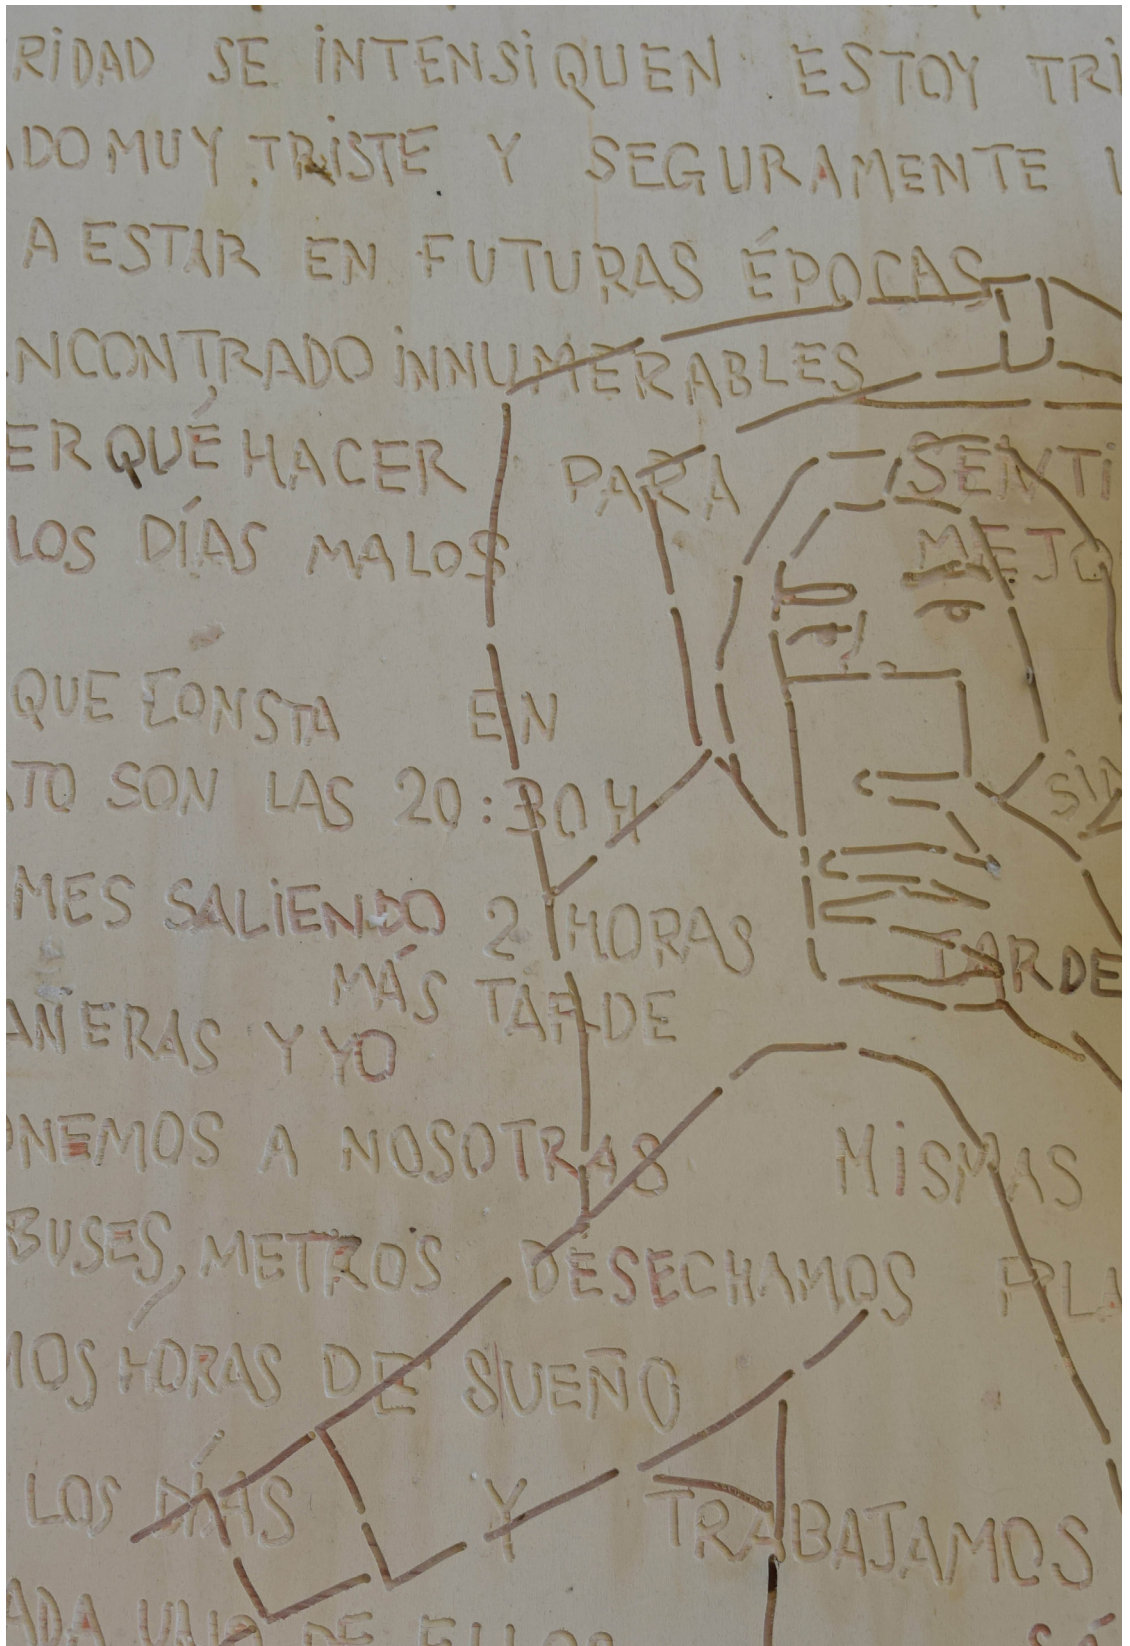 RIDAD SE INTENSIQUEN ESTOY TRI
ADO MUY TRISTE Y SEGURAMENTE
A ESTAR EN FUTURAS ÉPOCAS
NCONTRADO INNUMERABLES
ER QUÉ HACER PARA SENTI
LOS DÍAS MALOS MEJO
QUE CONSTA EN
TO SON LAS 20:30 H SIN
MES SALIENDO 2 HORAS
MÁS TARDE TARDE
AÑERAS Y YO
ONEMOS A NOSOTRAS MISMAS
BUSES, METROS DESECHAMOS PLA
MOS HORAS DE SUEÑO
LOS DÍAS Y TRABAJAMOS
ADA UNO DE ELLOS